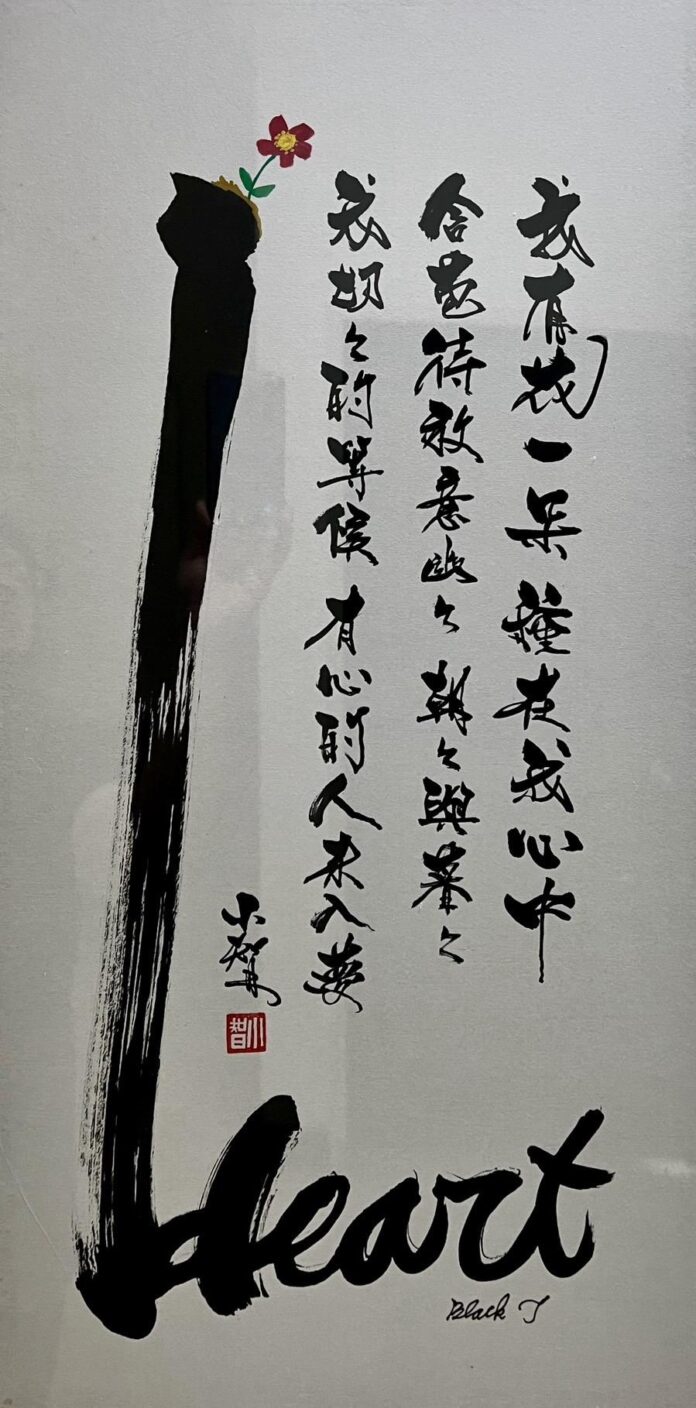 我有花一朵 種在我心中
含苞待放意幽々 朝々與暮々
我切々的等候 有心的人来入夢
小智
小智
Heart
Black J